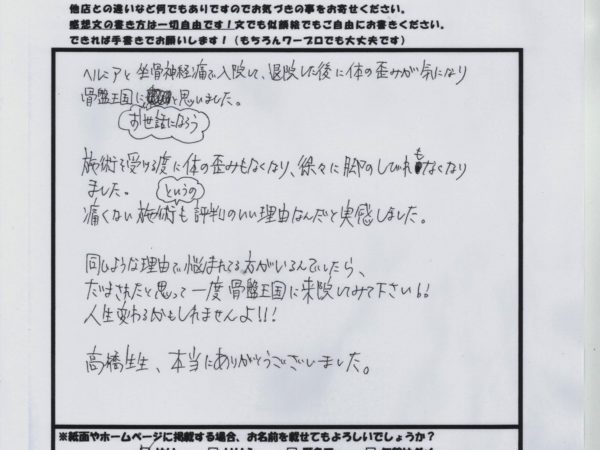 他店との違いなど何でもありですのでお気づきの事をお寄せください。
感想文の書き方は一切自由です！文でも似顔絵でもご自由にお書きください。
できれば手書きでお願いします！（もちろんワープロでも大丈夫です）
ヘルニアと坐骨神経痛で入院して、退院した後に体の歪みが気になり
骨盤王国にお世話になろうと思いました。
施術を受ける度に体の歪みもなくなり、徐々に脚のしびれもなくなり
ました。
痛くない施術というのも評判のいい理由なんだと実感しました。
同じような理由で悩まれてる方がいるんでしたら、
だまされたと思って一度骨盤王国に来院してみて下さい!!
人生変わるかもしれませんよ!!!
高橋先生、本当にありがとうございました。
※紙面やホームページに掲載する場合、お名前を載せてもよろしいでしょうか？